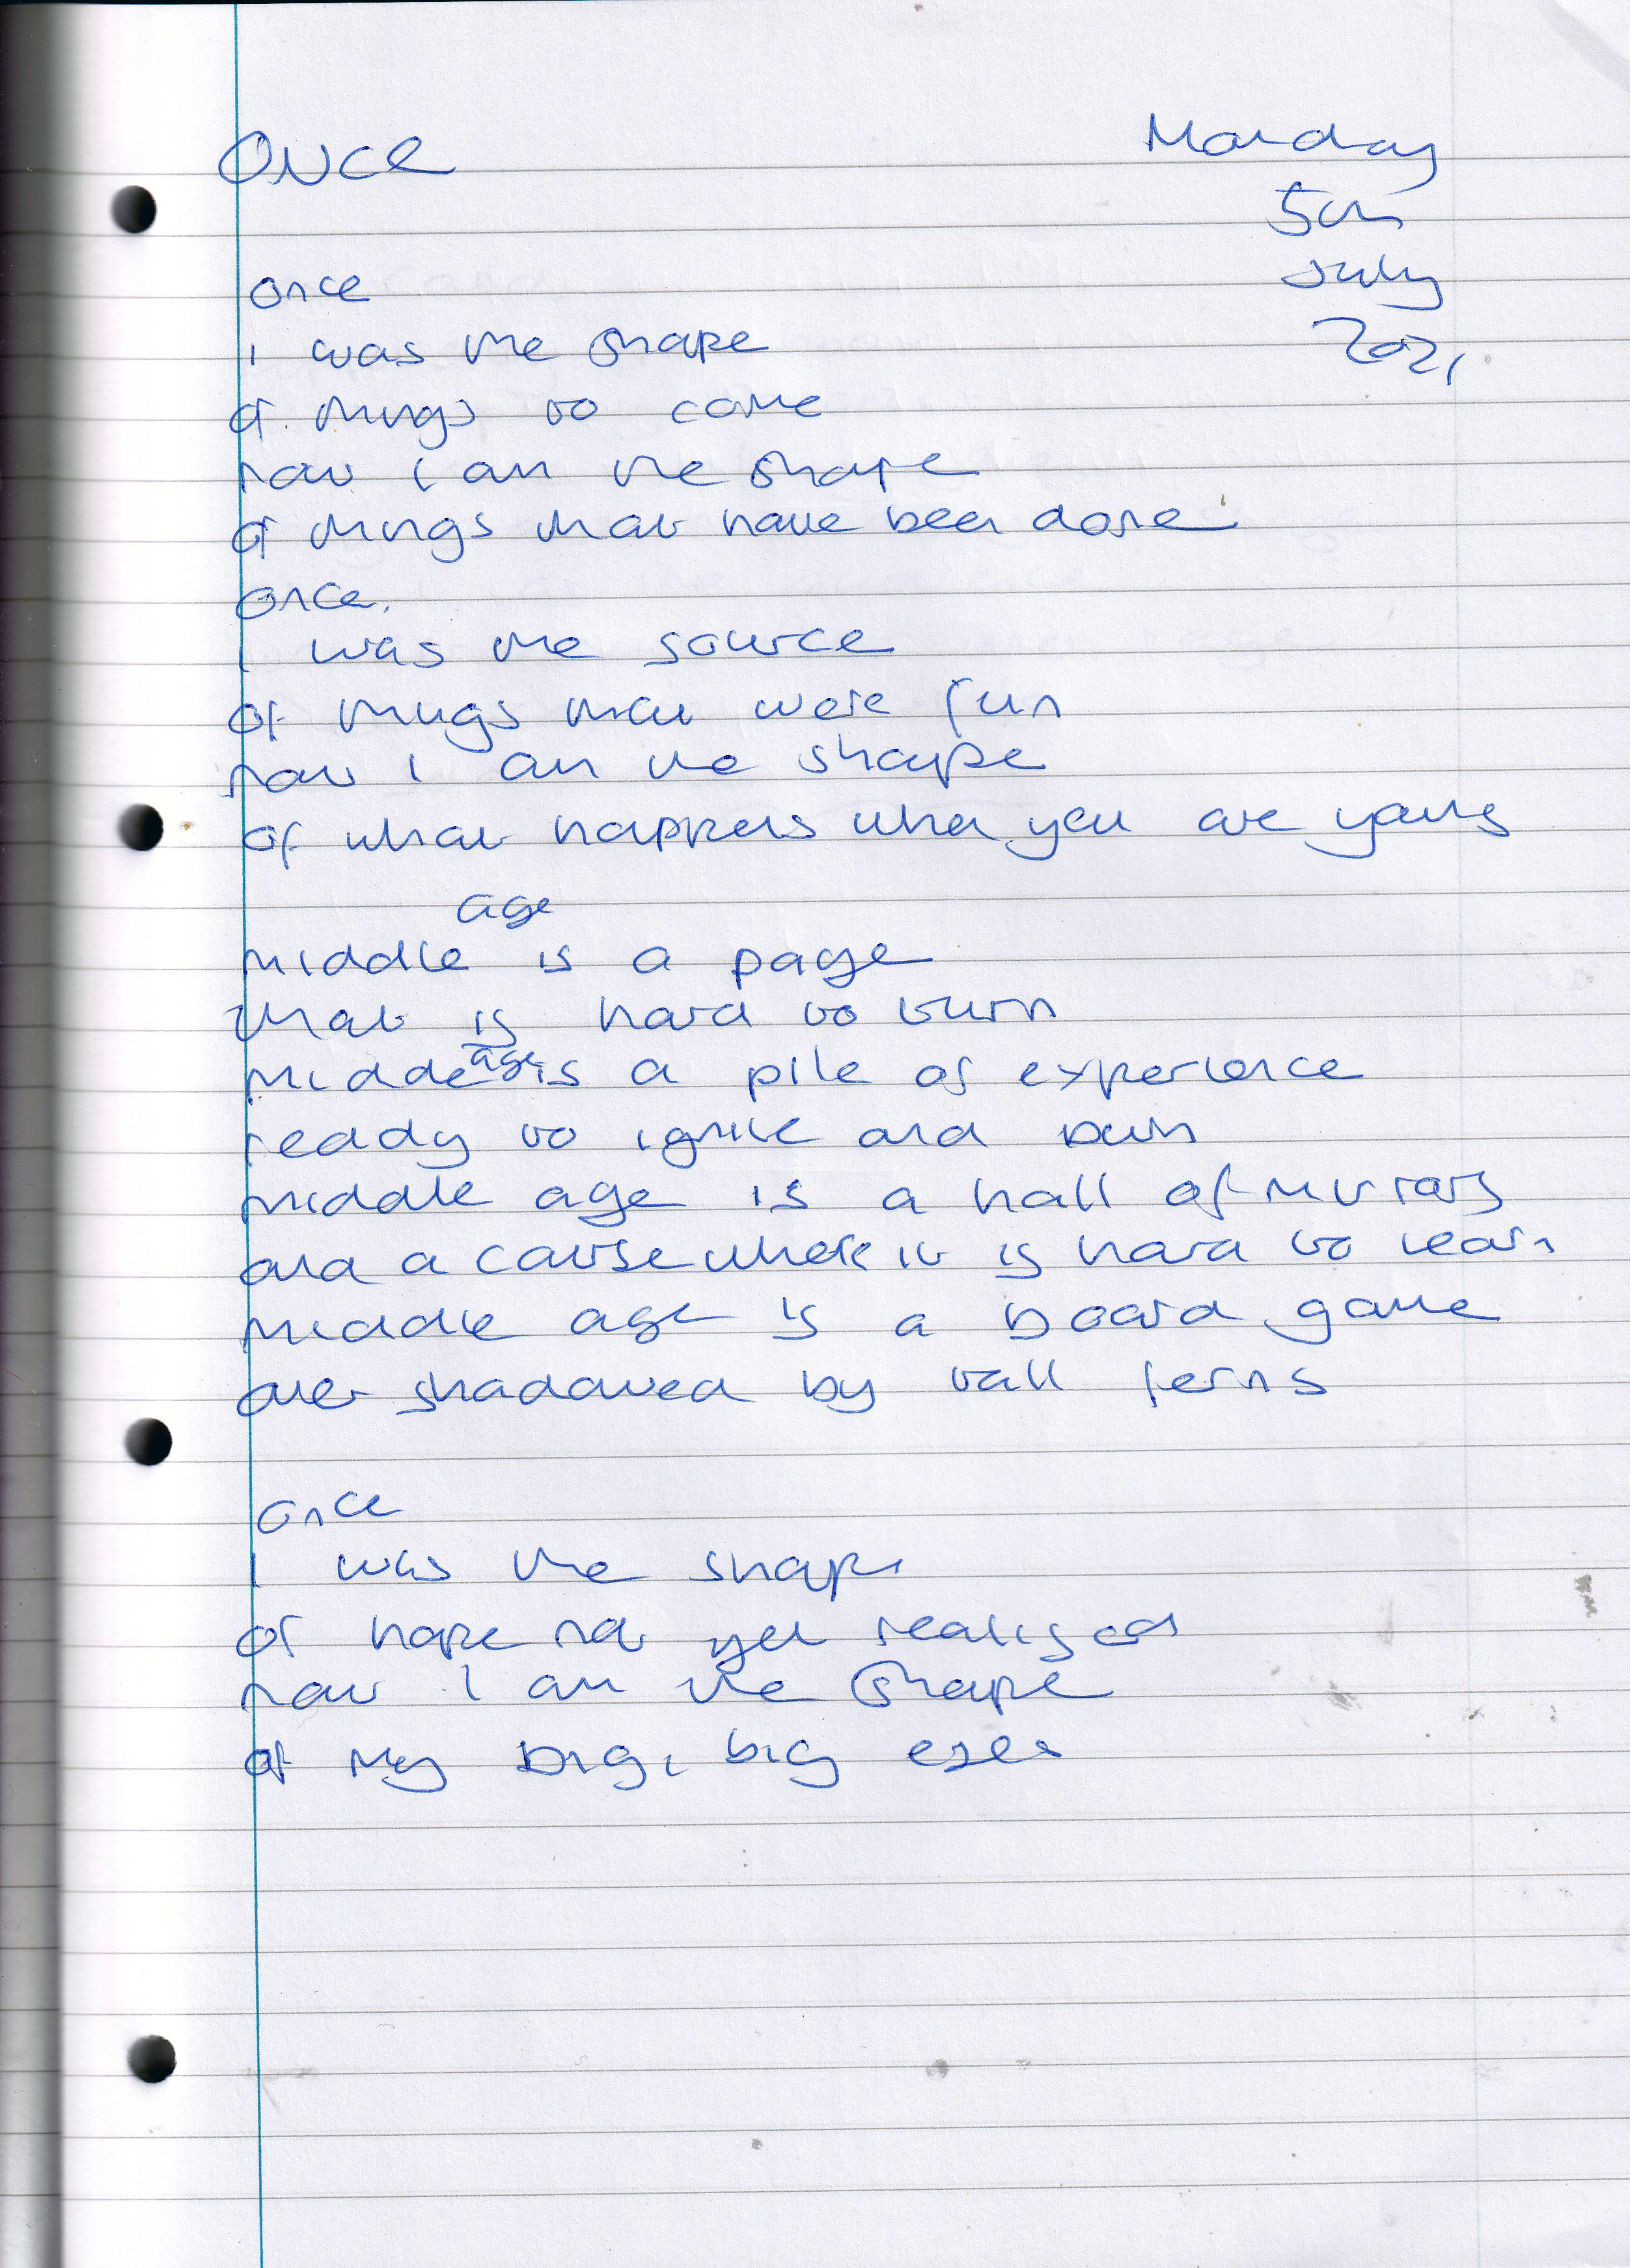 Once
Monday
5th
July
2021
once
I was the shape
of things to come
now I am the shape
of things that have been done
once
I was the source
of things that were fun
now I am the shape
of what happens when you are young
age
middle is a page
that is hard to turn
age
middle is a pile of experience
ready to ignite and burn
middle age is a hall of mirrors
and a course where it is hard to learn
middle age is a board game
over shadowed by tall ferns
once
I was the shape
of hope not yet realised
now I am the shape
of my big, big eyes